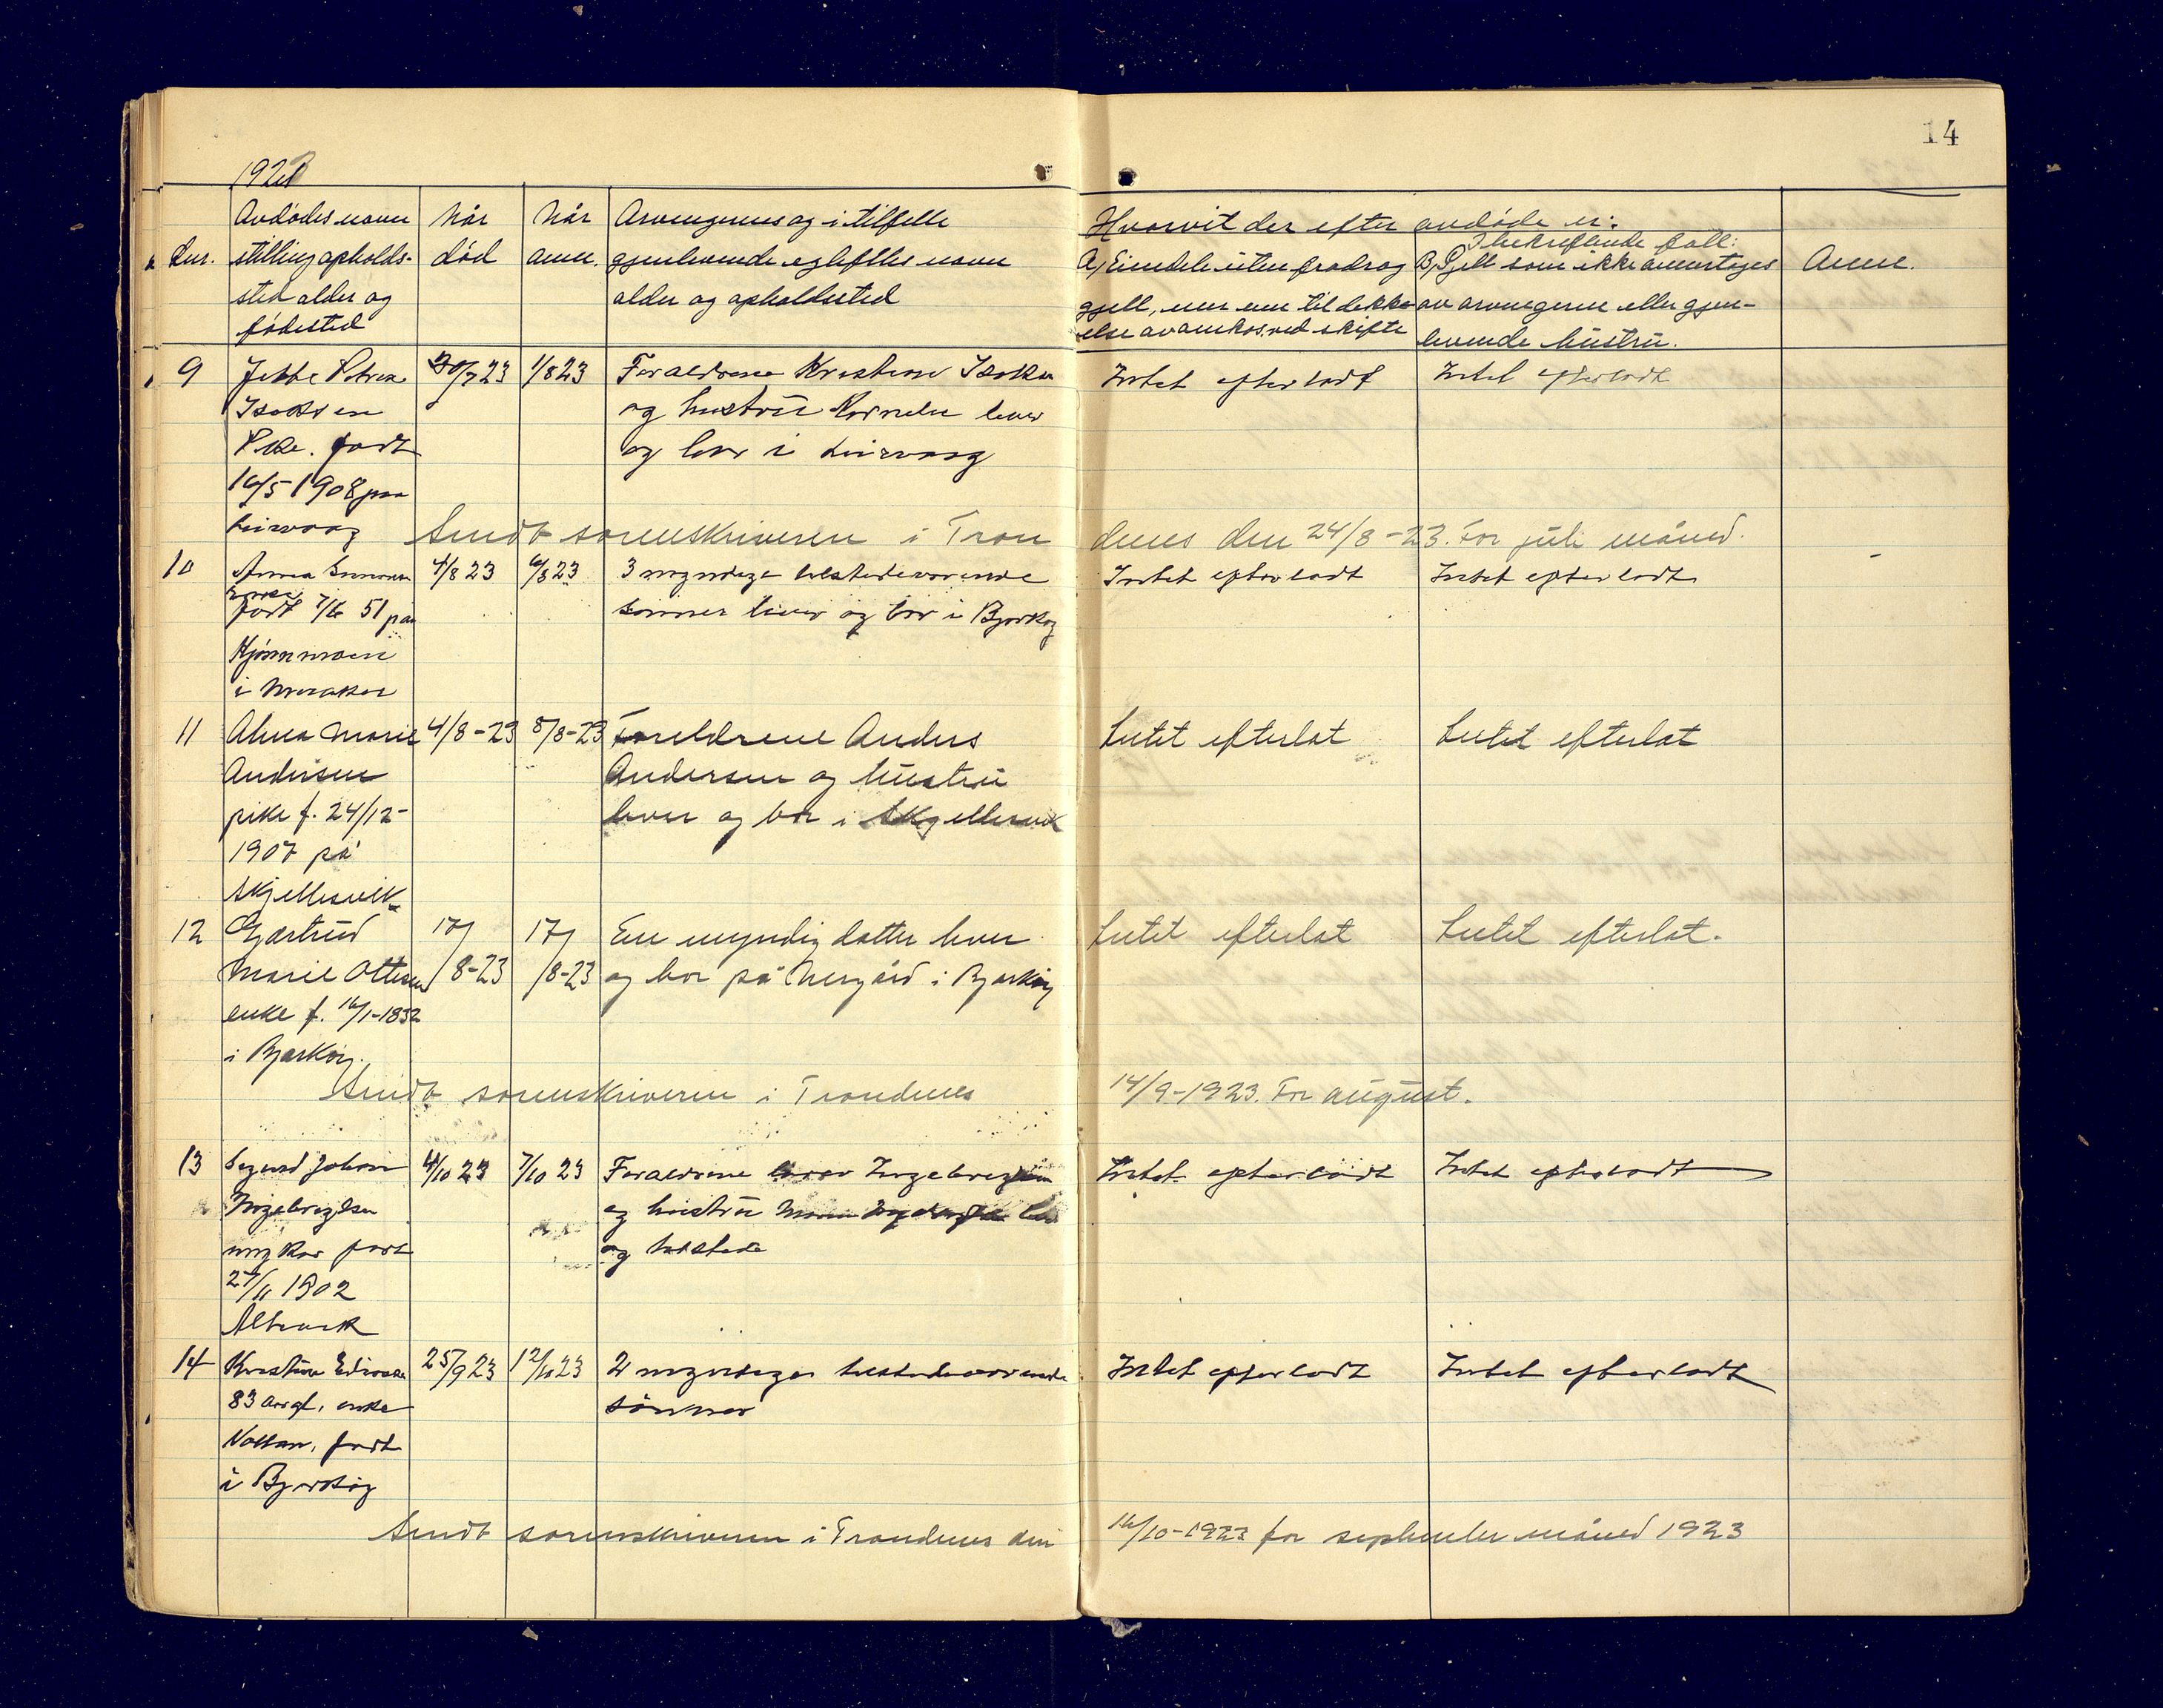 14
192
Lnr.
Avdødes navn
stilling opholds-
sted alder og
fødested
Når
død
Når
anm.
Arvingernes og i tilfelle
gjenlevende egtefelles navn
alder og opholdssted
Hvorvit der efter avdøde er:
A) Eiendele uten fradrag
gjell, mer enn til dekk-
else av omkos. ved skifte
I bekreftende fall:
B) Gjell som ikke overtages
av arvingerne eller gjen-
levende hustru.
Anm.
9
Petrea
Isaksen
Pike. født
16/5 1908 paa
Leirvaag
30/7 23
1/8 23
Foraldrene Kristian Isaksen
og hustru lever
og bor i Leirvaag
Intet efterladt
Intet efterladt
Sendt sorenskriveren i Tron
denes den 24/8-23. For juli måned.
10
Anna
født 7/6 51 paa
i Meraker
4/8 23
6/8 23
3 myndige tilstedeværende
sønner lever og bor i Bjarkøy
Intet efterladt
Intet efterladt
11
Alma Marie
Andersen
pike f. 24/12-
1907 på
Skjellesvik
4/8-23
8/8-23
Foreldrene Anders
Andersen og hustru
lever og bor i Skjellesvik
Intet efterlat
Intet efterlat
12
Gjertrud
Marie Ottesen
enke f. 16/1-1832
i Bjarkøy.
17/8-23
17/8-23
En myndig datter lever
og bor på Nergård i Bjarkøy
Intet efterlat
Intet efterlat.
Sendt sorenskriveren i Trondenes
14/9-1923. For august.
13
Sigurd Johan
Ingebrigtsen
ungkar født
27/11 1902
4/10 23
7/10 23
Foraldrene Ingebrigtsen
og hustru
og tilstede
Intet efterladt
Intet efterladt
14
Kristine
83 aar gl. enke
født
i Bjarkøy
25/9 23
12/10 23
2 myndige tilstedeværende
sønner
Intet efterladt
Intet efterladt
Sendt sorenskriveren i Trondenes den
16/10-1923 for september måned 1923